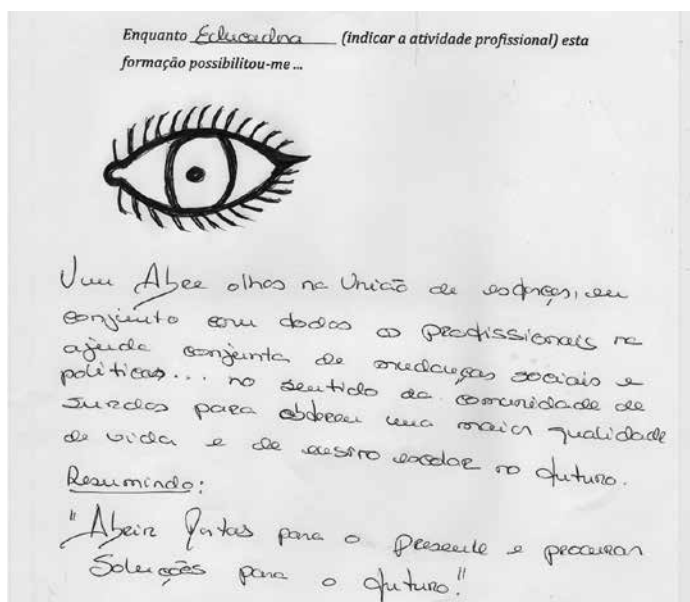 Enquanto Educadora (indicar a atividade profissional) esta
formação possibilitou-me ...
Um Abre olhos na União de esforços, em
conjunto com todos os profissionais na
ajuda conjunta de mudanças sociais e
políticas... no sentido da comunidade de
Surdos para obterem uma maior qualidade
de vida e de ensino escolar no futuro.
Resumindo:
"Abrir Portas para o Presente e procurar
Soluções para o futuro!"